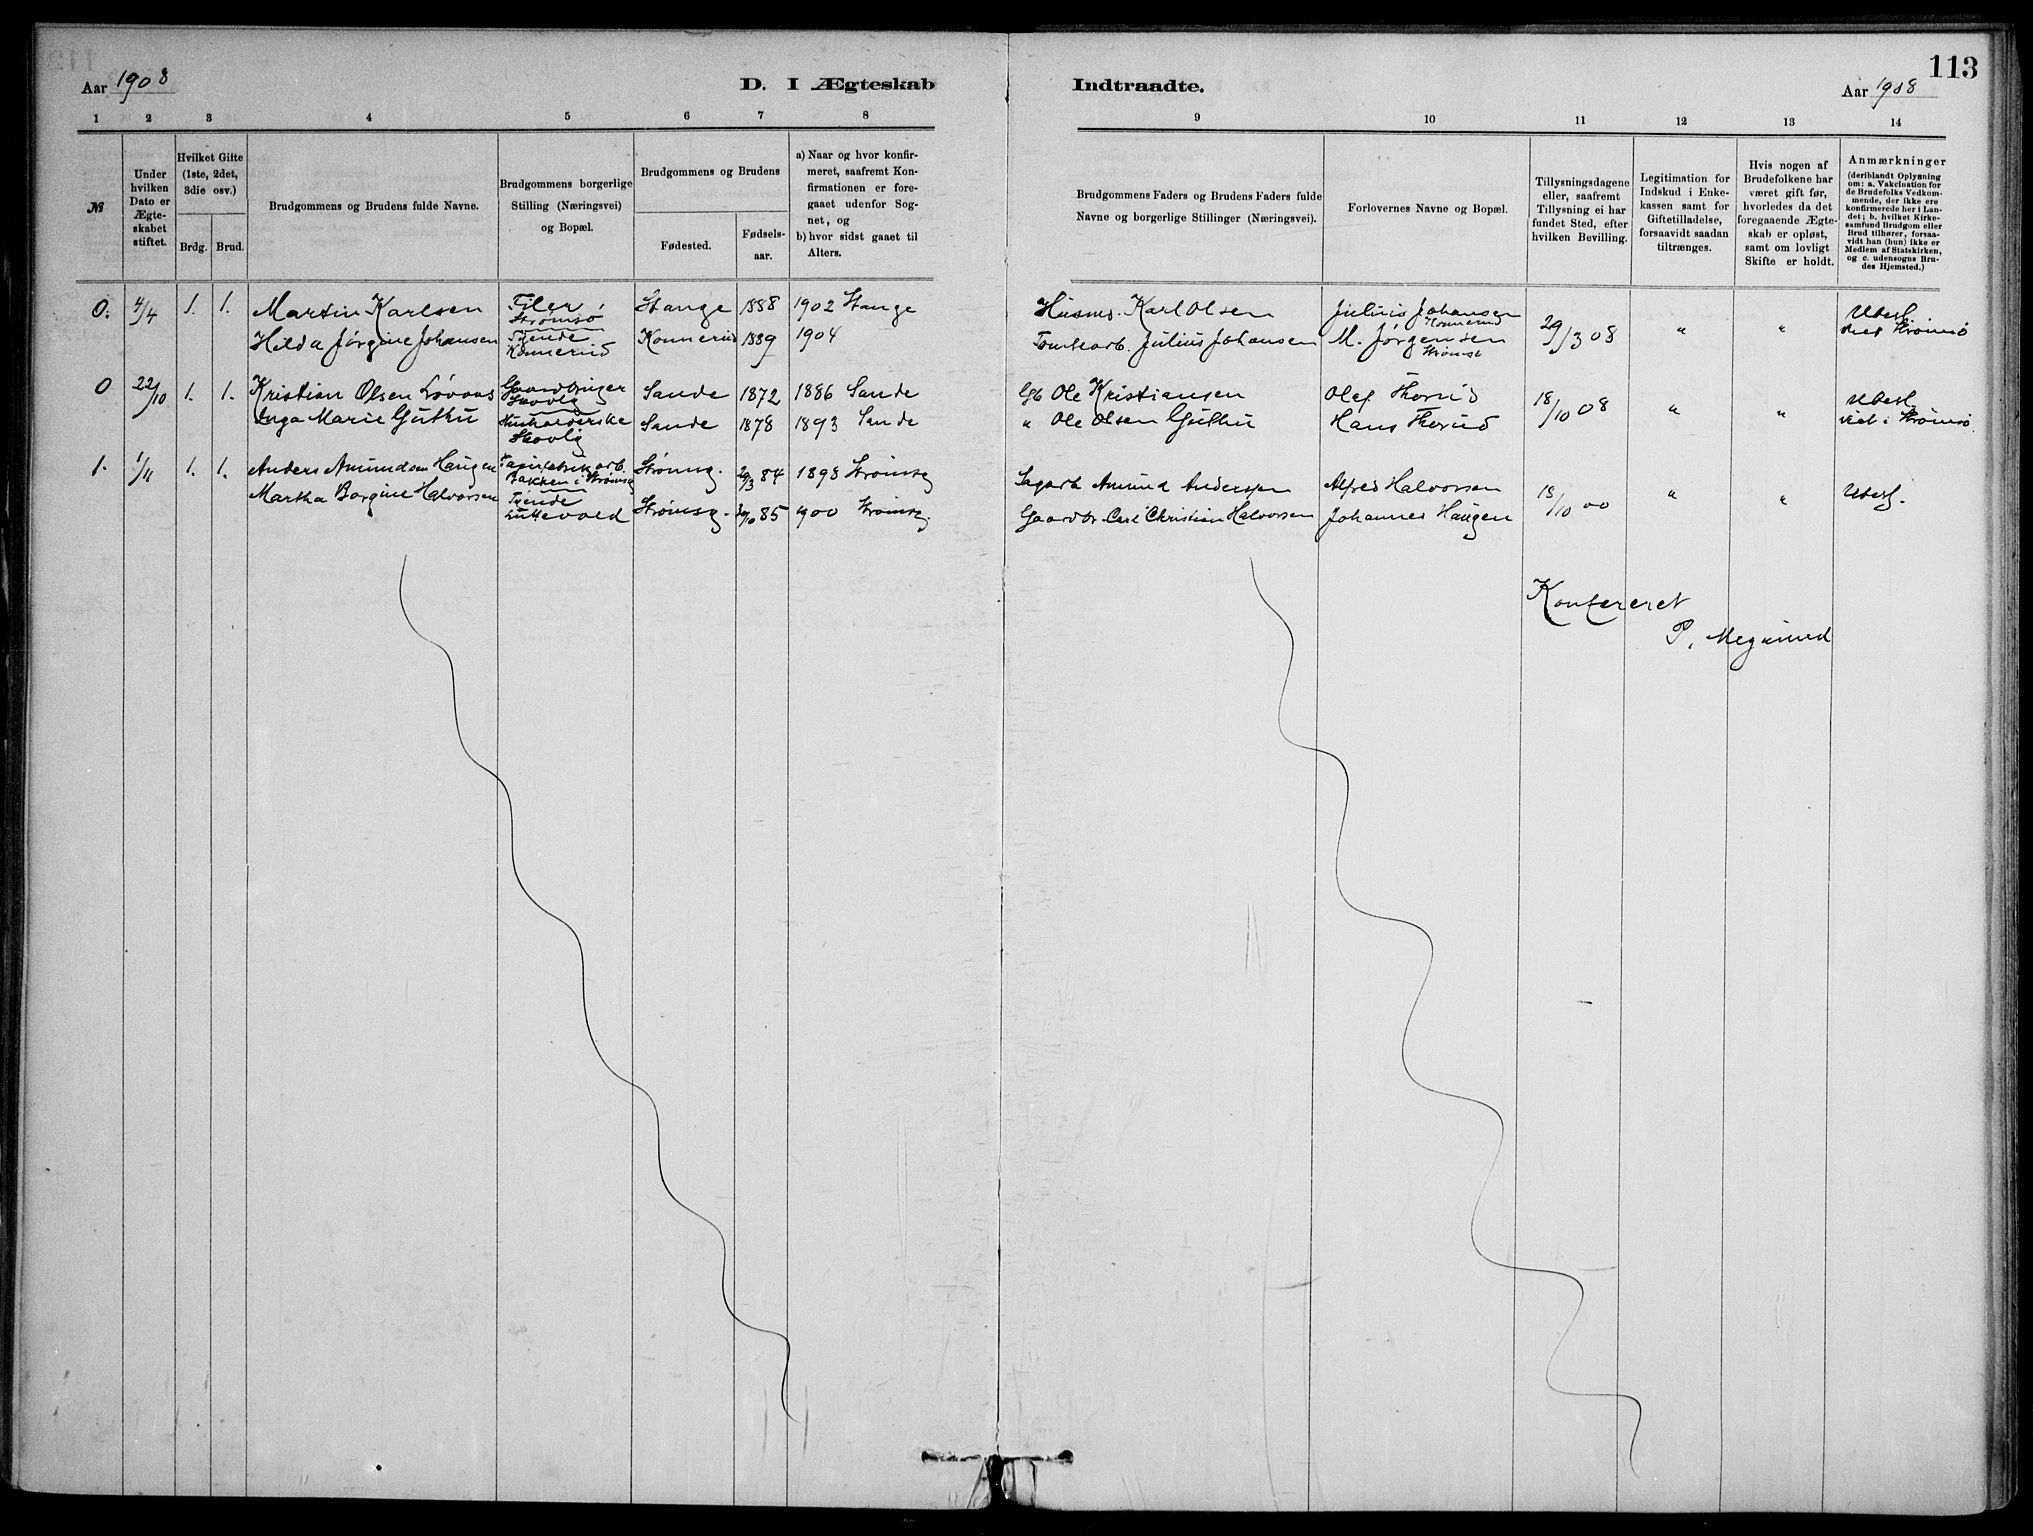 113
Aar 1908
D. I Ægteskab
Indtraadte.
Aar 1908
1 2 3 4 5 6 7 8 9 10 11 12 13 14
№
Under hvilken Dato er Ægte-skabet stiftet.
Hvilket Gifte (1ste, 2det, 3die osv.)
Brdg. Brud.
Brudgommens og Brudens fulde Navne.
Brudgommens borgerlige Stilling (Næringsvei) og Bopæl.
Brudgommens og Brudens
Fødested.
Fødsels-aar.
a) Naar og hvor konfir-meret, saafremt Kon-firmationen er fore-gaaet udenfor Sog-net, og
b) hvor sidst gaaet til Alters.
Brudgommens Faders og Brudens Faders fulde Navne og borgerlige Stillinger (Næringsvei).
Forlovernes Navne og Bopæl.
Tillysningsdagene eller, saafremt Tillysning ei har fundet Sted, efter hvilken Bevilling.
Legitimation for Indskud i Enke-kassen samt for Giftetilladelse, forsaavidt saadan tiltrænges.
Hvis nogen af Brudefolkene har været gift før, hvorledes da det foregaaende Ægte-skab er opløst, samt om lovligt Skifte er holdt.
Anmærkninger
(deriblandt Oplysning om: a. Vakcination for de Brudefolks Vedkom-mende, der ikke ere konfirmerede her i Lan-det; b. hvilket Kirke-samfund Brudgom eller Brud tilhører, forsaa-vidt han (hun) ikke er Medlem af Statskirken, og c. udensogns Bru-des Hjemsted.)
0. 4/4 1. 1. Martin Karlsen Filer Strømsø Stange 1888 1902 Stange Husms. Karl Olsen Julius Johansen Konnerud 29/3 08 " " Ubesl. viet Strømsø
Hilda Jørgine Johansen Tjende Konnerud Konnerud 1889 1904 Tomtearb. Julius Johansen M. Jørgensen Strømsø
0 22/10 1. 1. Kristian Olsen Løvaas Gaardbruger Skovlg Sande 1872 1886 Sande Gb Ole Kristiansen Olaf Thorud 18/10 08 " " Ubesl. viet i Strømsø
Inga Marie Guthu Husholderske Skovlg Sande 1878 1893 Sande " Ole Olsen Guthu Hans Thorud
1. 1/11 1. 1. Anders Amundsen Haugen Papirfabrikarb. Bakken i Strømsg Strømsg. 20/3 84 1898 Strømsg Sagarb Amund Andersen Alfred Halvorsen 18/10 00 " " Ubesl.
Martha Borgine Halvorsen Tjende Strømsg. 85 1900 Strømsg. Gaardbr. Carl Christian Halvorsen Johannes Haugen
Konfereret
P.